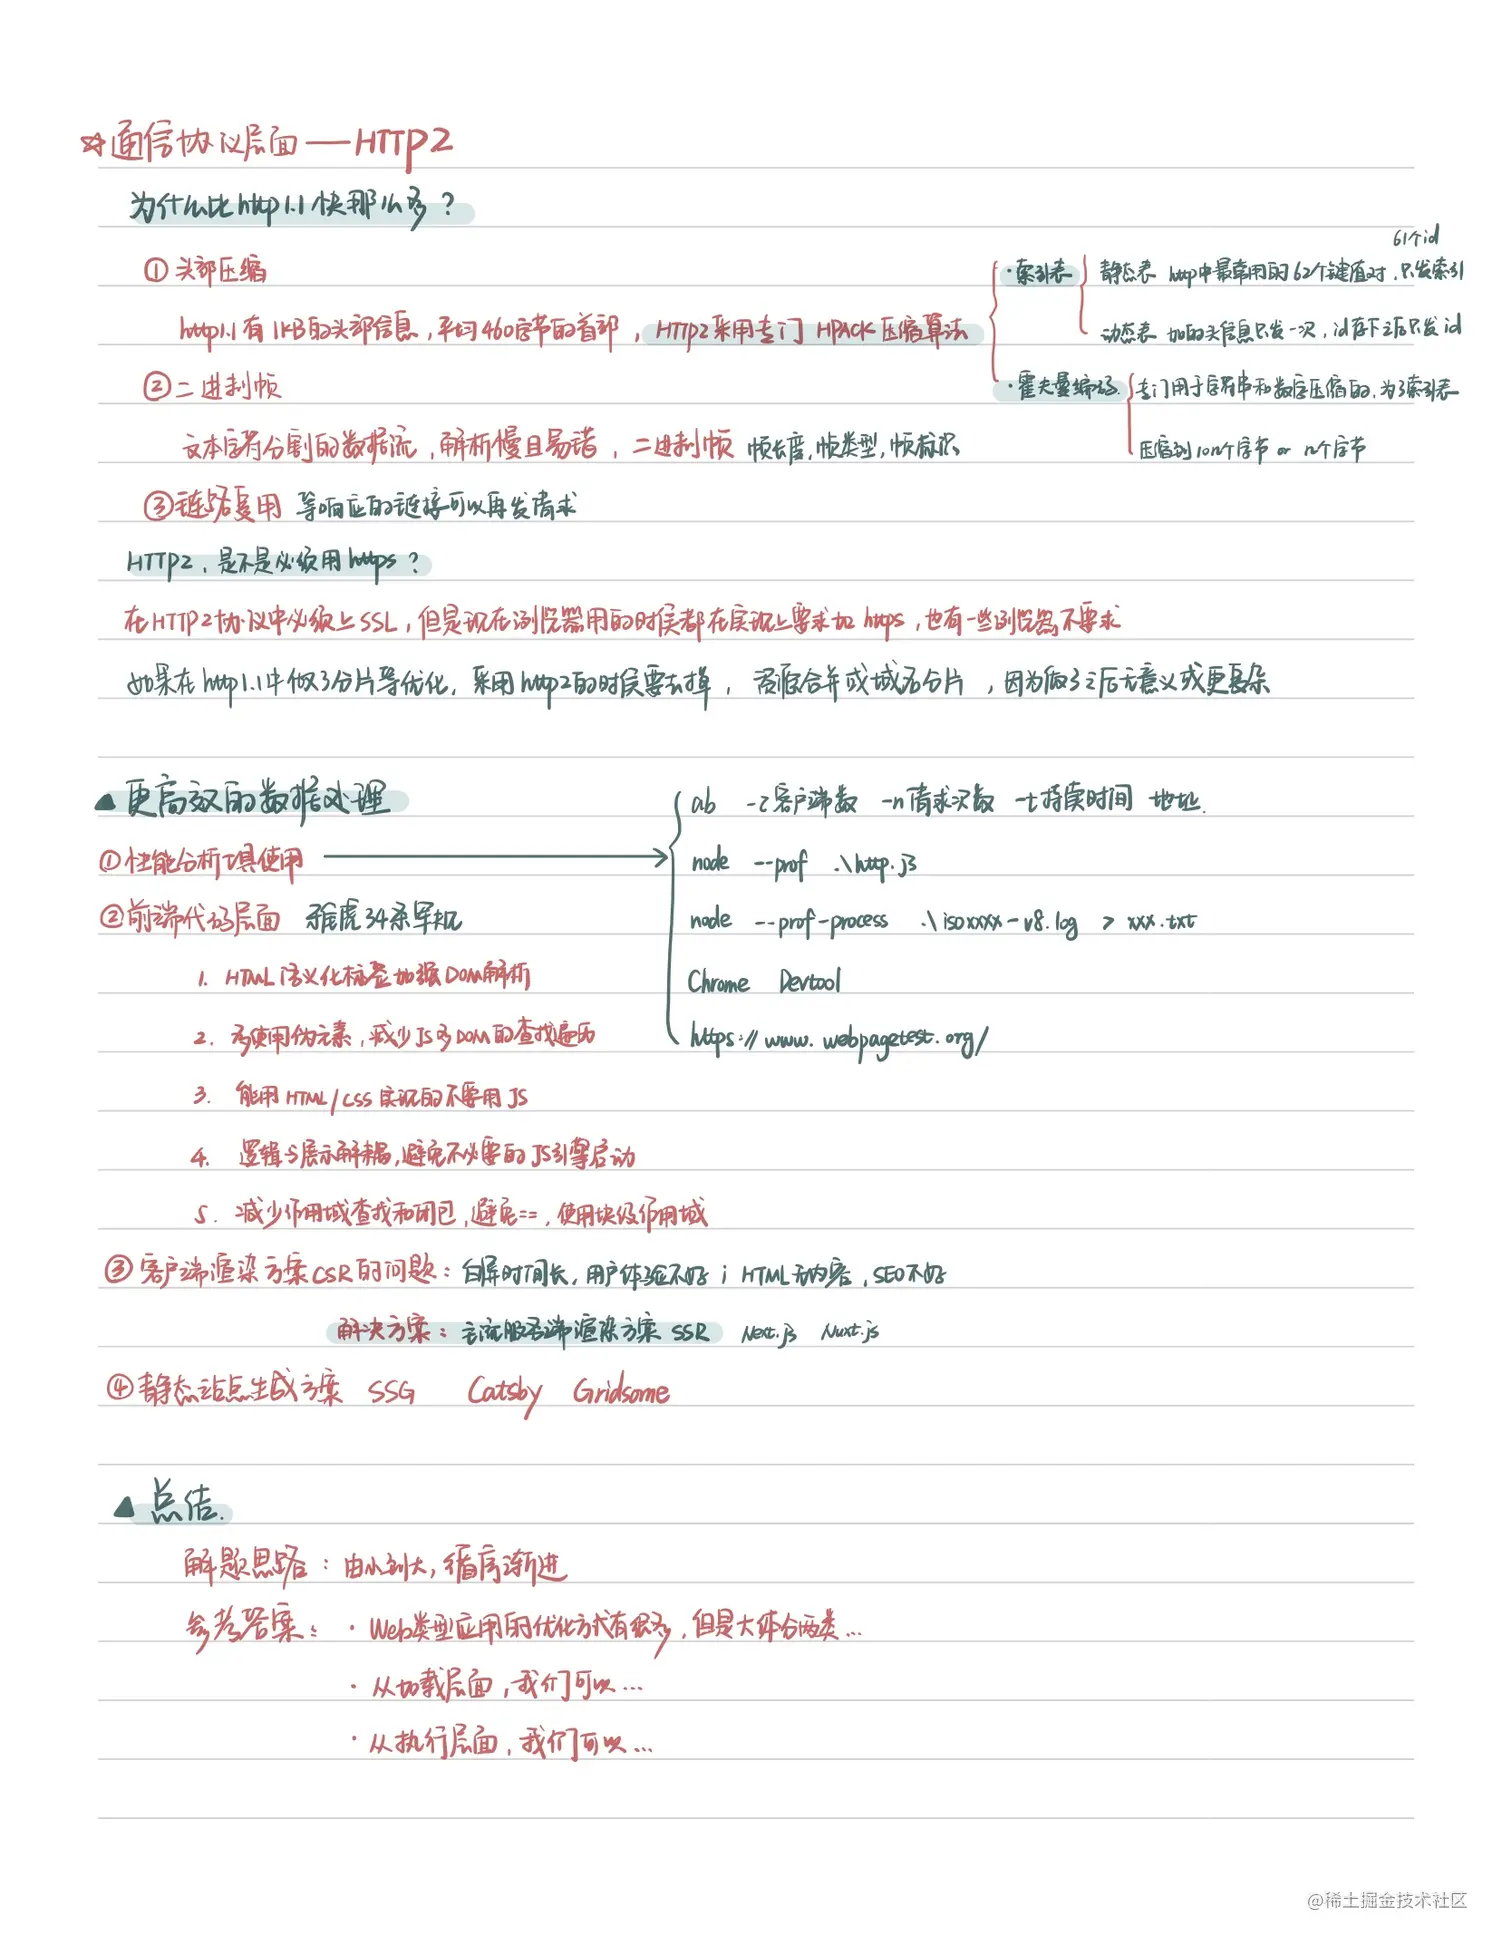 ☆通信协议层面——HTTP2
为什么比http1.1快那么多？
① 头部压缩
http1.1有1KB的头部信息，平均460字节的首部，HTTP2采用专门HPACK压缩算法
·索引表
61个id
静态表 http中最常用的62个键值对，只发索引
动态表 加的头信息只发一次，id存下之后只发id
·霍夫曼编码
专门用于字符串和数字压缩的，为了索引表
压缩到 字节 or n个字节
②二进制帧
文本字符分割的数据流，解析慢且易错，二进制帧 帧长度，帧类型，帧标识
③链路复用 等响应的链接可以再发请求
HTTP2，是不是必须用https？
在HTTP2协议中必须上SSL，但是现在浏览器用的时候都在实现上要求加https，也有一些浏览器不要求
如果在http1.1中做了分片等优化，采用http2的时候要去掉，资源合并或域名分片，因为做了之后无意义或更复杂
▲更高效的数据处理
①性能分析工具使用
ab -c客户端数 -n请求次数 -t持续时间 地址.
node --prof .\http.js
node --prof-process .\isoxxxx-v8.log > xxx.txt
Chrome Devtool
https://www.webpagetest.org/
②前端代码层面 雅虎34条军规
1. HTML语义化标签加强DOM解析
2. 多使用伪元素，减少JS多DOM的查找遍历
3. 能用HTML/CSS实现的不要用JS
4. 逻辑与展示解耦，避免不必要的JS引擎启动
5. 减少作用域查找和闭包，避免==，使用块级作用域
③客户端渲染方案CSR的问题：白屏时间长，用户体验不好；HTML无内容，SEO不好
解决方案：主流服务端渲染方案 SSR Next.js Nuxt.js
④静态站点生成方案 SSG Catsby Gridsome
▲总结.
解题思路：由小到大，循序渐进
参考答案：·Web类型应用的优化方式有很多，但是大体分两类...
·从加载层面，我们可以...
·从执行层面，我们可以...
@稀土掘金技术社区